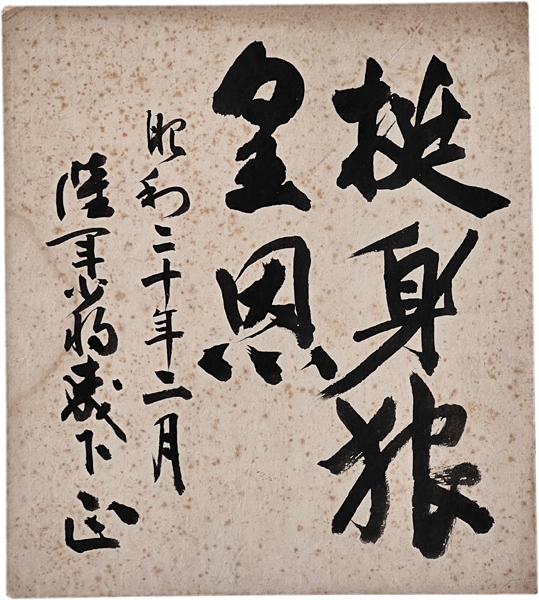 挺身報
皇恩
昭和二十年二月
陸軍少将 下 正